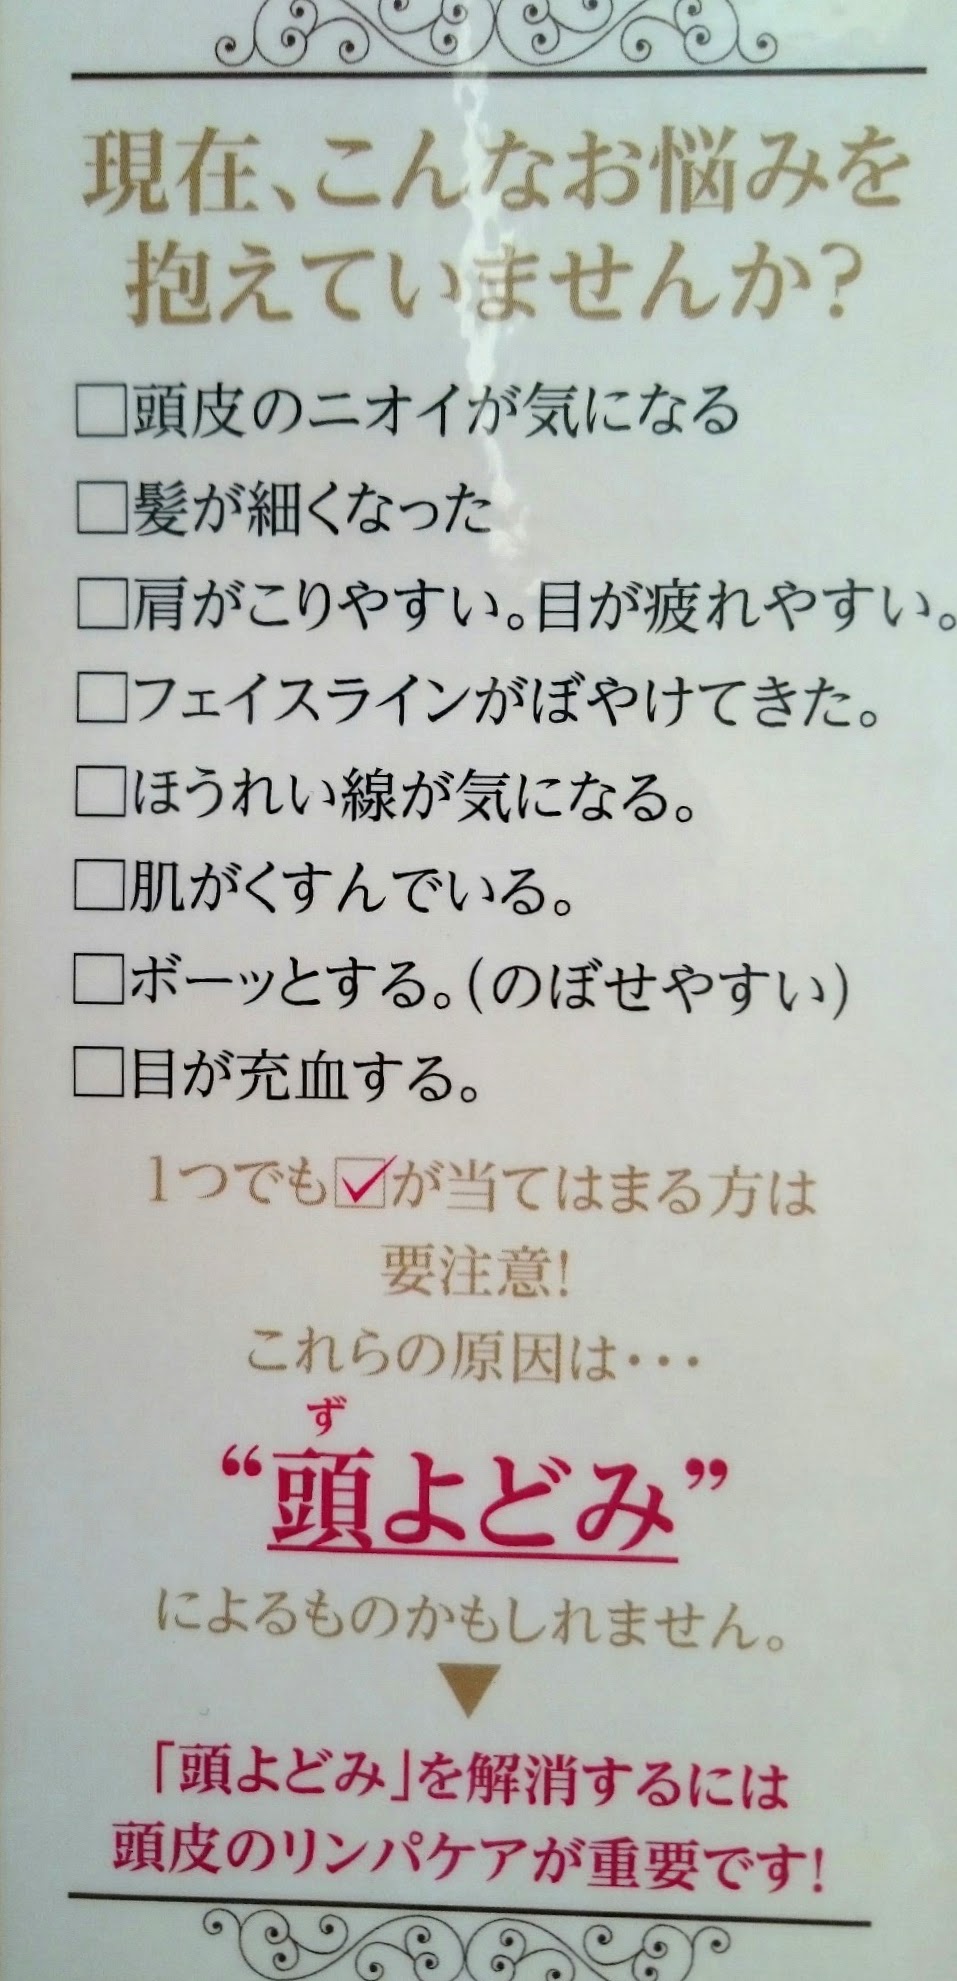 現在、こんなお悩みを
抱えていませんか?
□頭皮のニオイが気になる
□髪が細くなった
□肩がこりやすい。目が疲れやすい。
□フェイスラインがぼやけてきた。
□ほうれい線が気になる。
□肌がくすんでいる。
□ボーッとする。(のぼせやすい)
□目が充血する。
1つでも☑が当てはまる方は
要注意!
これらの原因は・・・
ず
“頭よどみ”
によるものかもしれません。
▼
「頭よどみ」を解消するには
頭皮のリンパケアが重要です!